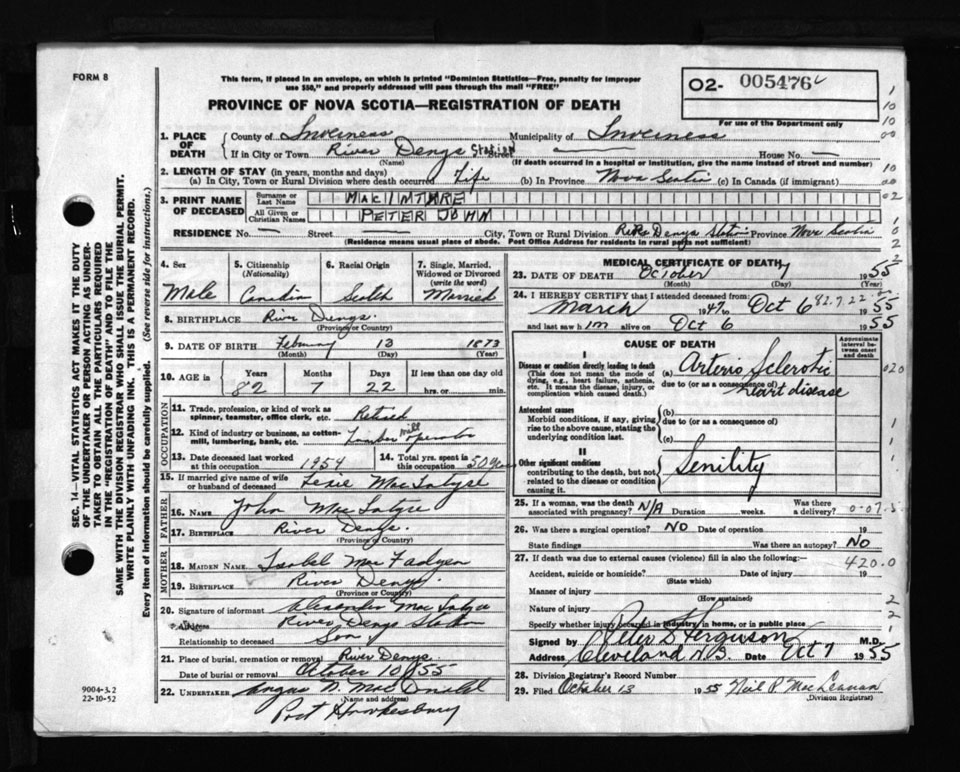 FORM 8
This form, if placed in an envelope, on which is printed "Dominion Statistics—Free, penalty for improper
use $50," and properly addressed will pass through the mail "FREE"
PROVINCE OF NOVA SCOTIA—REGISTRATION OF DEATH
O2- 005476
For use of the Department only
1. PLACE OF DEATH
County of Inverness Municipality of Inverness
If in City or Town River Denys Station Street — House No. —
(Name) (If death occurred in a hospital or institution, give the name instead of street and number)
2. LENGTH OF STAY (in years, months and days)
(a) In City, Town or Rural Division where death occurred Life (b) In Province Nova Scotia (c) In Canada (if immigrant)
3. PRINT NAME OF DECEASED
Surname or Last Name MACINTYRE
All Given or Christian Names PETER JOHN
RESIDENCE No. — Street — City, Town or Rural Division River Denys Station Province Nova Scotia
(Residence means usual place of abode. Post Office Address for residents in rural parts not sufficient)
4. Sex
Male
5. Citizenship
(Nationality)
Canadian
6. Racial Origin
Scotch
7. Single, Married, Widowed or Divorced
(write the word)
Married
8. BIRTHPLACE River Denys.
(Province or Country)
9. DATE OF BIRTH February 13 1873
(Month) (Day) (Year)
10. AGE in Years Months Days If less than one day old
82 7 22 hrs. or min.
OCCUPATION
11. Trade, profession, or kind of work as spinner, teamster, office clerk, etc. Retired
12. Kind of industry or business, as cotton-mill, lumbering, bank, etc. Lumber mill operator
13. Date deceased last worked at this occupation 1954
14. Total yrs. spent in this occupation 50 years
15. If married give name of wife or husband of deceased MacIntyre
FATHER
16. NAME John MacIntyre
17. BIRTHPLACE River Denys.
(Province or Country)
MOTHER
18. MAIDEN NAME Isabel MacFadyen
19. BIRTHPLACE River Denys.
(Province or Country)
20. Signature of informant Alexander MacIntyre
Address River Denys Station
Relationship to deceased Son
21. Place of burial, cremation or removal River Denys.
Date of burial or removal October 10/55
22. UNDERTAKER Angus N. MacDonald
(Name and address)
Port Hawkesbury
MEDICAL CERTIFICATE OF DEATH
23. DATE OF DEATH October 7 1955
(Month) (Day)
24. I HEREBY CERTIFY that I attended deceased from:
March 1947 to Oct 6 82.7.22 1955
and last saw him alive on Oct 6 1955
CAUSE OF DEATH
Approximate interval between onset and death
I
Disease or condition directly leading to death
(This does not mean the mode of dying, e.g., heart failure, asthenia, etc. It means the disease, injury, or complication which caused death.)
(a) Arterio Sclerotic
due to (or as a consequence of) heart disease
Antecedent causes
Morbid conditions, if any, giving rise to the above cause, stating the underlying condition last.
(b)
due to (or as a consequence of)
(c)
II
Other significant conditions
contributing to the death, but not related to the disease or condition causing it.
Senility
25. If a woman, was the death associated with pregnancy? N/A Duration weeks. Was there a delivery?
26. Was there a surgical operation? NO Date of operation 19
State findings Was there an autopsy? NO
27. If death was due to external causes (violence) fill in also the following:— 420.0
Accident, suicide or homicide? Date of injury 19
(State which)
Manner of injury
(How sustained)
Nature of injury
Specify whether injury occurred in industry, in home, or in public place
Signed by Peter D Ferguson M.D.
Address Cleveland N.S. Date Oct 7 1955
28. Division Registrar's Record Number
29. Filed October 13 1955 Neil R MacLennan
(Division Registrar)
SEC. 14—VITAL STATISTICS ACT MAKES IT THE DUTY
OF THE UNDERTAKER OR PERSON ACTING AS UNDER-
TAKER TO OBTAIN ALL THE PARTICULARS REQUIRED
IN THE "REGISTRATION OF DEATH" AND TO FILE THE
SAME WITH THE DIVISION REGISTRAR WHO SHALL ISSUE THE BURIAL PERMIT.
WRITE PLAINLY WITH UNFADING INK. THIS IS A PERMANENT RECORD.
Every item of information should be carefully supplied. (See reverse side for instructions.)
9004-3.2
22-10-52